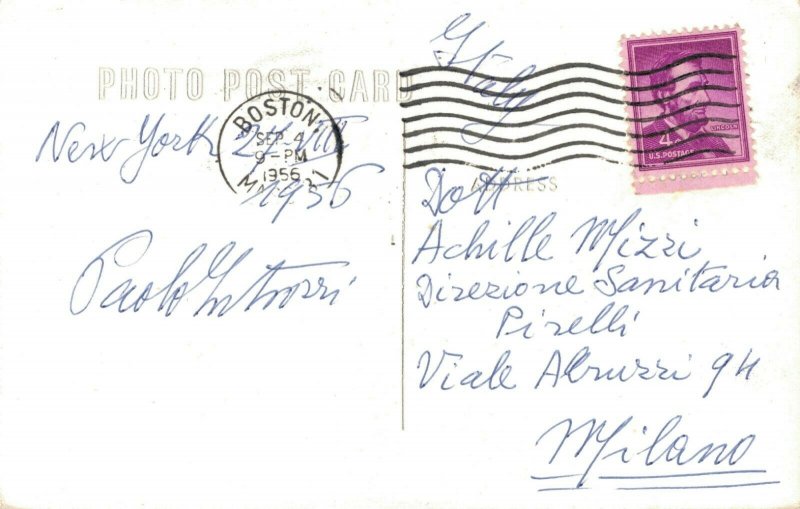 PHOTO POST CARD
Italy
BOSTON
SEP 4
9-PM
1956
MASS.
4¢
LINCOLN
U.S. POSTAGE
New York
1956
Paolo Introzzi
ADDRESS
Dott
Achille Mizzi
Direzione Sanitaria
Pirelli
Viale Abruzzi 94
Milano